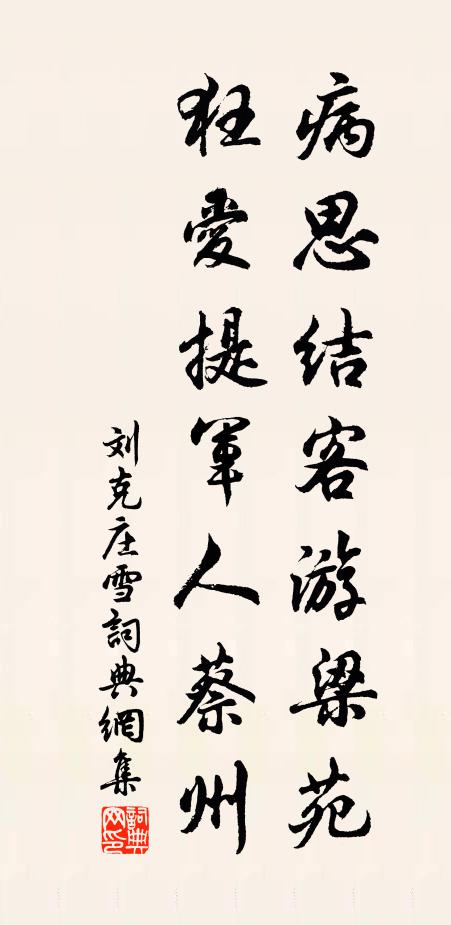 病思结客游梁苑
狂愛提軍人蔡州
刘克庄雪詞典網集
詞典网印